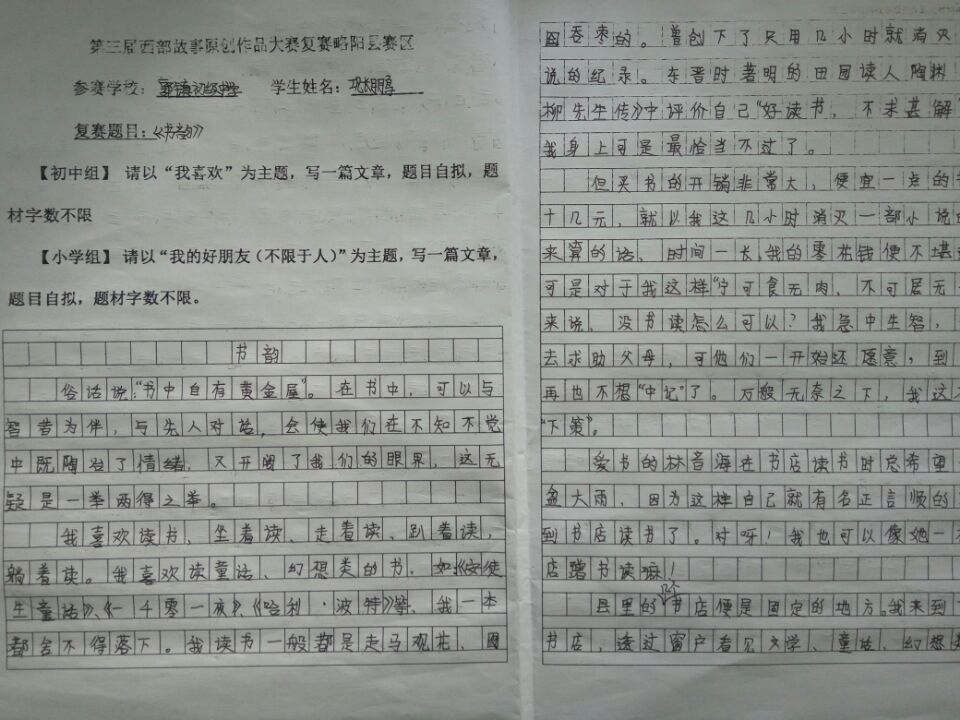 第三届西部故事原创作品大赛复赛略阳县赛区
参赛学校：郭镇初级中学 学生姓名：
复赛题目：《书韵》
【初中组】 请以“我喜欢”为主题，写一篇文章，题目自拟，题
材字数不限
【小学组】 请以“我的好朋友（不限于人）”为主题，写一篇文章，
题目自拟，题材字数不限。
书韵
俗话说：“书中自有黄金屋”。在书中，可以与
智者为伴，与先人对话，会使我们在不知不觉
中既陶冶了情绪，又开阔了我们的眼界，这无
疑是一举两得之举。
我喜欢读书，坐着读、走着读、趴着读，
躺着读。我喜欢读童话、幻想类的书，如《安徒
生童话》、《一千零一夜》、《哈利·波特》等，我一本
都舍不得落下。我读书一般都是走马观花、囫
囵吞枣的。曾创下了只用几小时就消灭
说的纪录。东晋时著明的田园读人陶渊
柳先生传》中评价自己“好读书，不求甚解
我身上可是最恰当不过了。
但买书的开销非常大，便宜一点的
十几元，就以我这几小时消灭一部小说的
来算的话，时间一长，我的零花钱便不堪
可是对于我这样“宁可食无肉，不可居无
来说，没书读怎么可以？我急中生智，
去求助父母，可他们一开始还愿意，到
再也不想“中记”了。万般无奈之下，我这
“下策”。
爱书的林音海在书店读书时总希望
盆大雨，因为这样自己就有名正言师的
到书店读书了。对呀！我也可以像她一
店蹭书读嘛！
县里的书店便是固定的地方。我来到
书店，透过窗户看见文学、童话、幻想